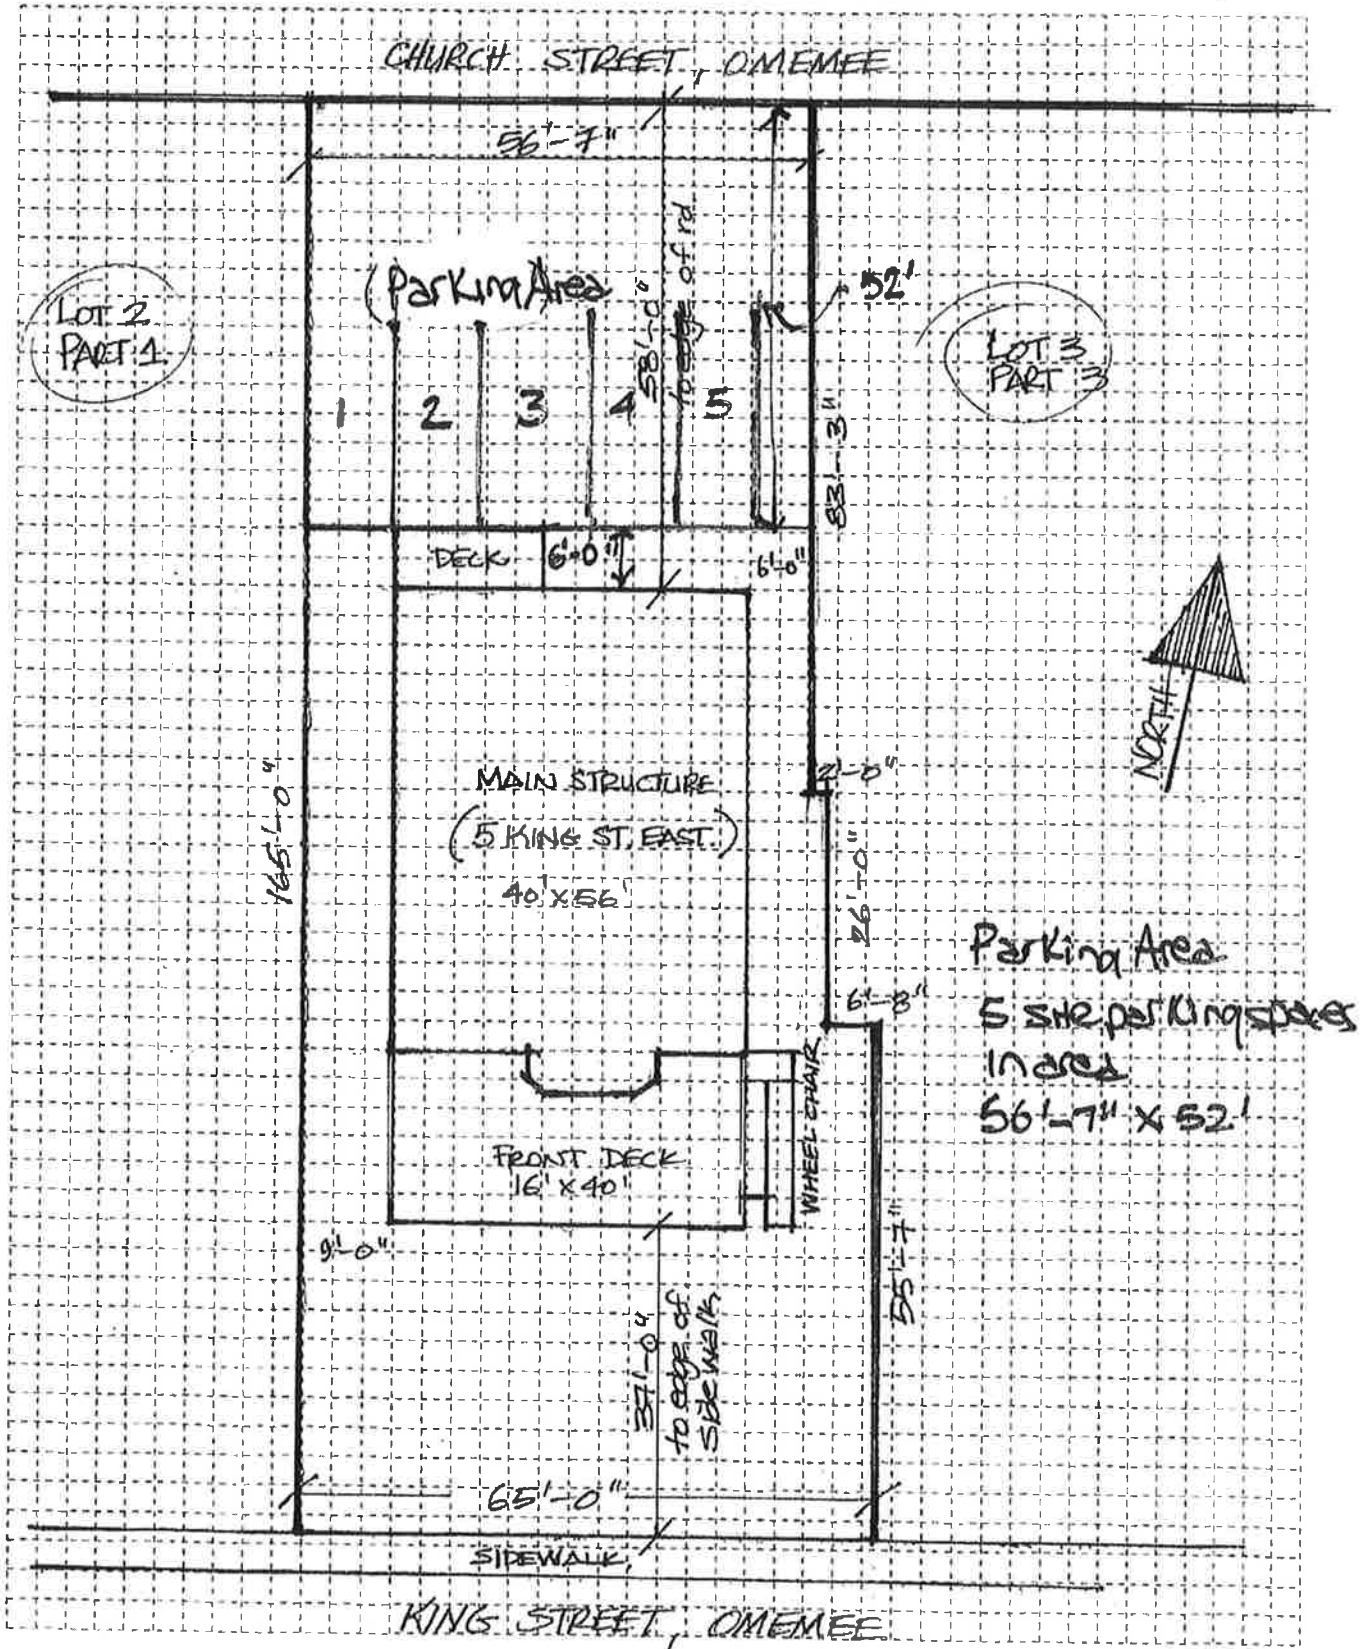 CHURCH STREET, OMEMEE
56'-7"
(Parking Area
58'-0"
to edge of rd
52'
LOT 2
PART 1
LOT 3
PART 3
1
2
3
4
5
83'-3"
DECK
6'-0"
6'-0"
NORTH
2'-0"
MAIN STRUCTURE
(5 KING ST. EAST.)
40' X 56'
165'-0"
26'-0"
6'-8"
Parking Area
5 site parking spaces
in area
56'-7" X 52'
WHEEL CHAIR
FRONT DECK
16' X 40'
9'-0"
55'-7"
37'-0"
to edge of
Sidewalk
65'-0"
SIDEWALK,
KING STREET, OMEMEE